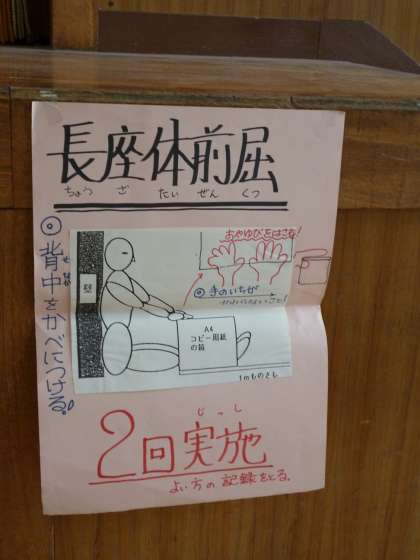 長座体前屈
ちょう ざ たい ぜん くつ
◎背中をかべにつける。
せ なか
おやゆびをはこに!
◎手のいちが
壁
A4
コピー用紙
の箱
1mものさし
じっし
2回実施
よい方の記録をとる。